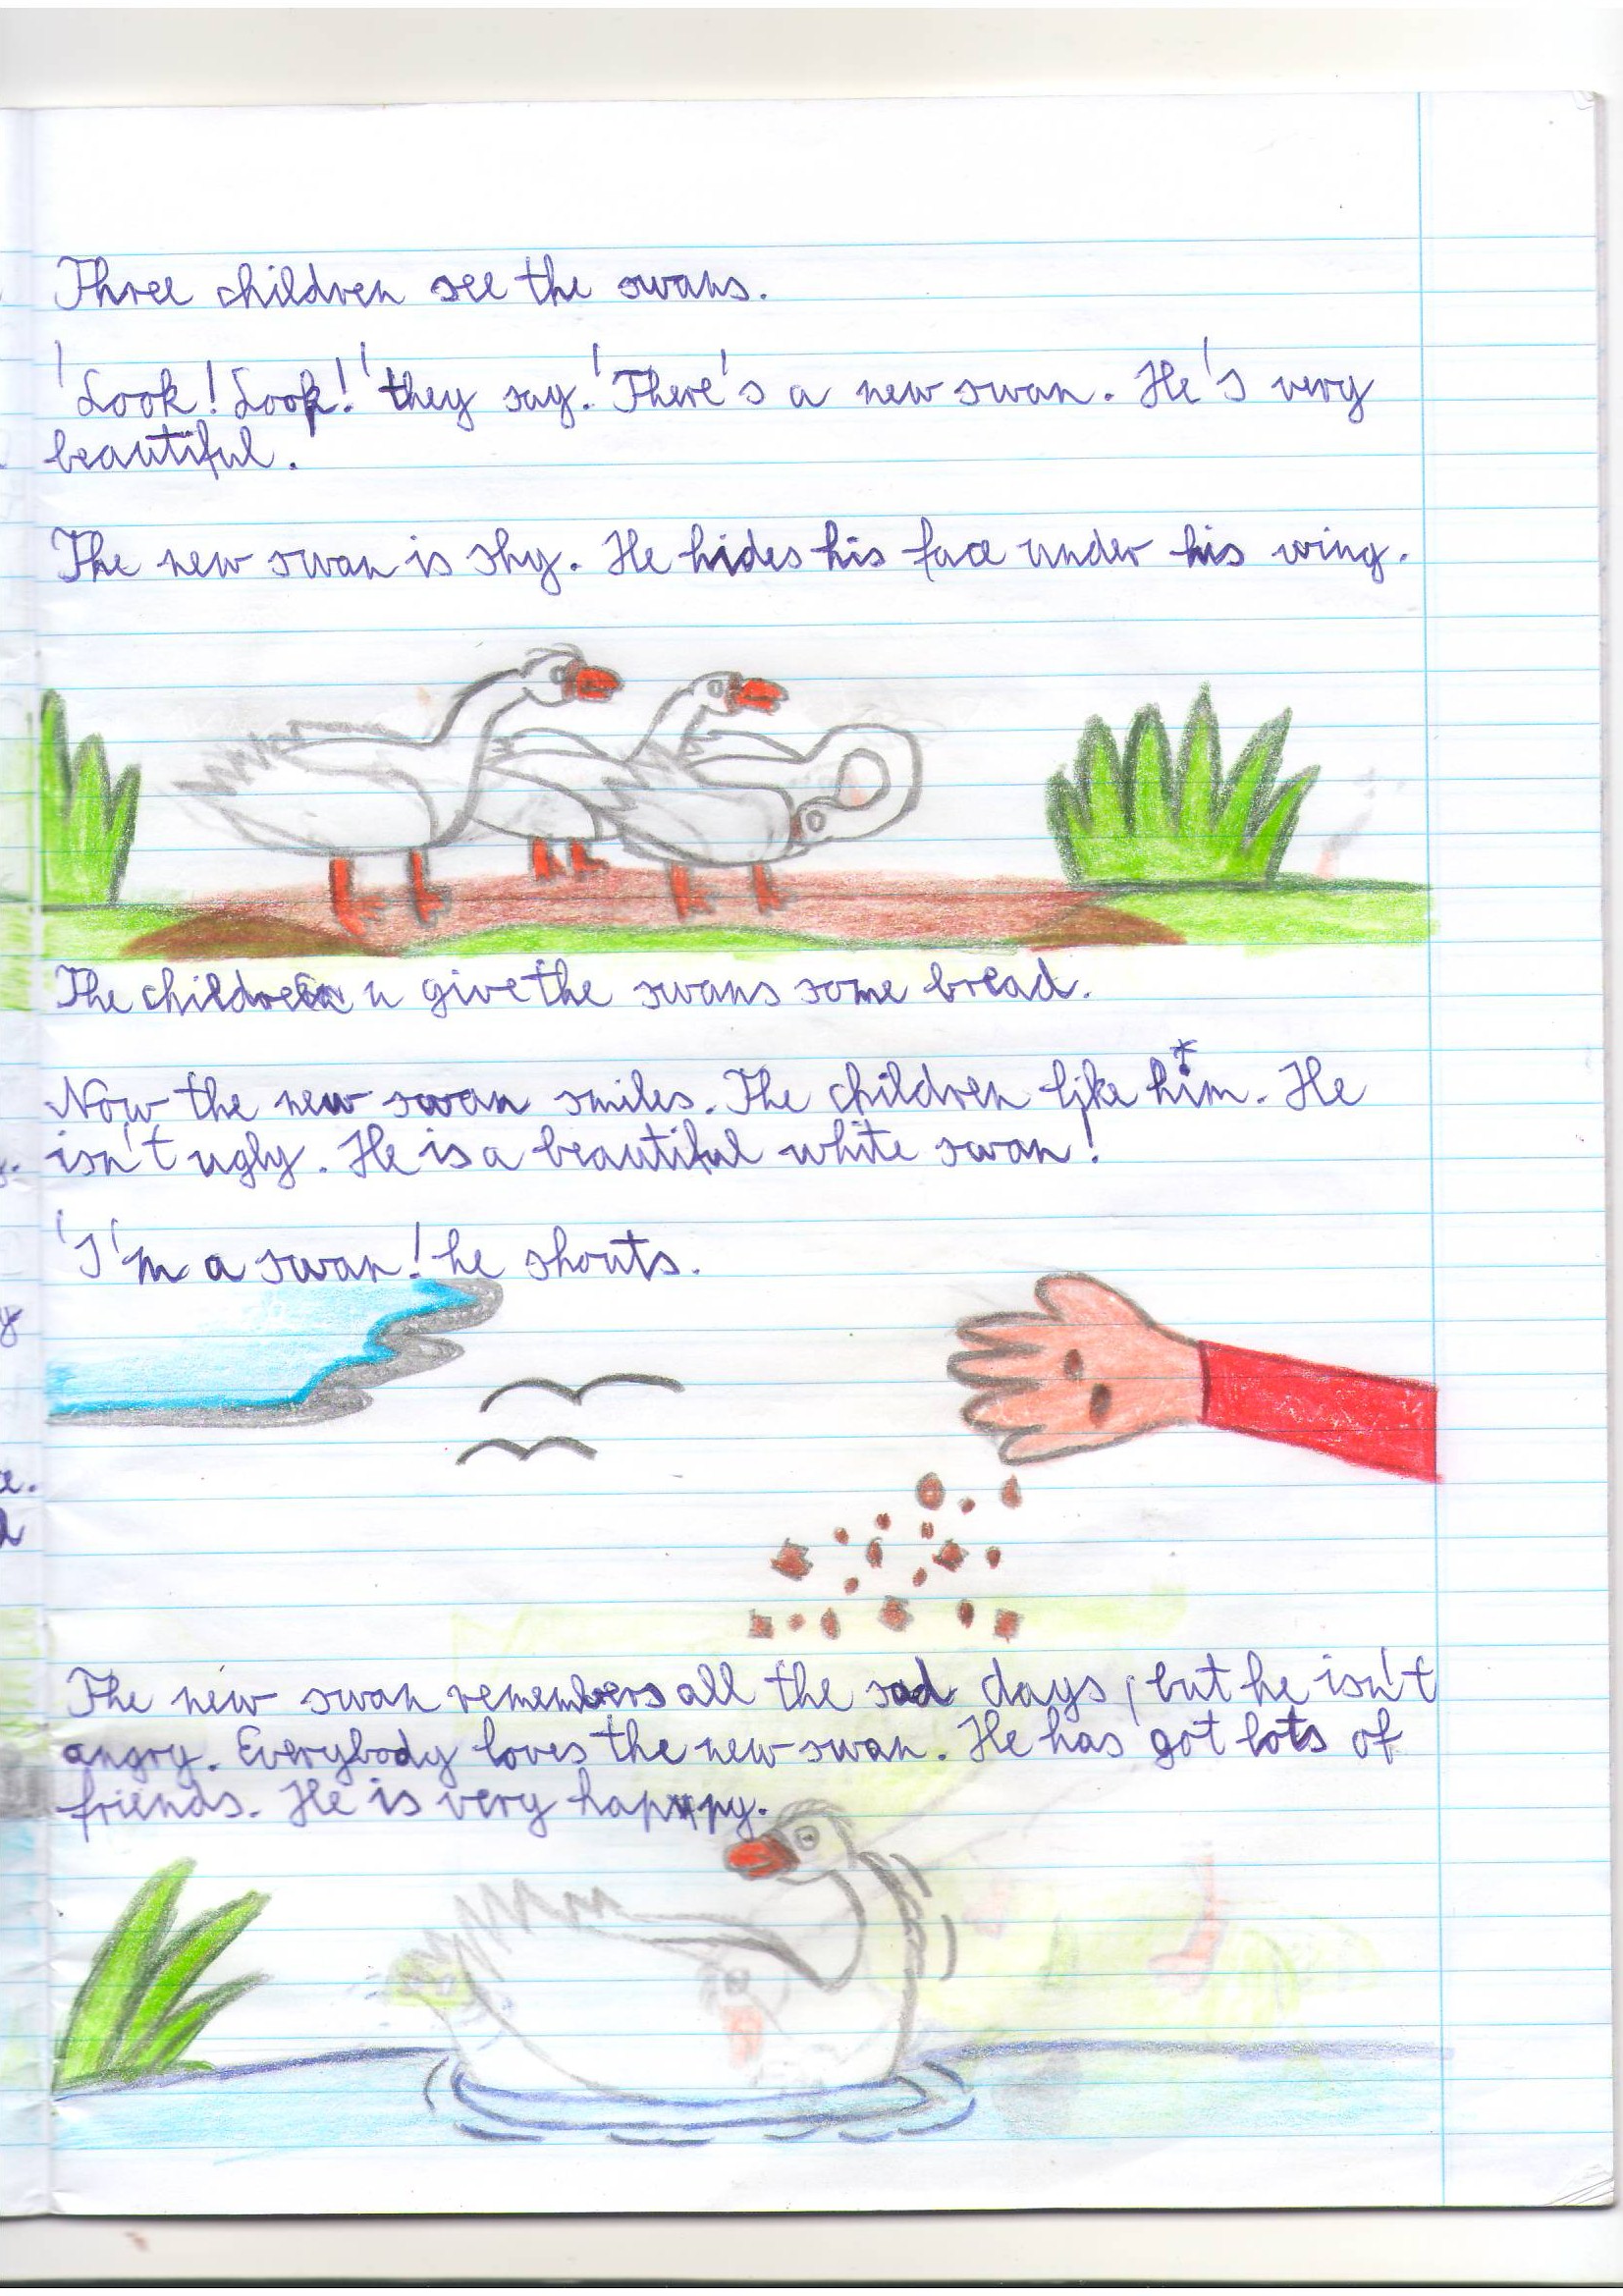 Three children see the swans.
'Look! Look!' they say. 'There's a new swan. He's very
beautiful.
The new swan is shy. He hides his face under his wing.
The children give the swans some bread.
Now the new swan smiles. The children like him. He
isn't ugly. He is a beautiful white swan!
'I'm a swan! he shouts.
The new swan remembers all the sad days, but he isn't
angry. Everybody loves the new swan. He has got lots of
friends. He is very happy.